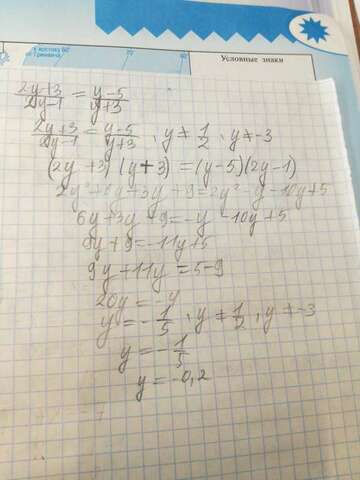 к востоку 60°
от Гринвича
70°
80°
Условные знаки
(2y+3)/(2y-1) = (y-5)/(y+3)
(2y+3)/(2y-1) = (y-5)/(y+3), y ≠ 1/2, y ≠ -3
(2y+3)(y+3) = (y-5)(2y-1)
2y²+6y+3y+9=2y²-y-10y+5
6y+3y+9=-y-10y+5
9y+9=-11y+5
9y+11y=5-9
20y=-4
y=-1/5, y≠1/2, y≠-3
y=-1/5
y=-0,2